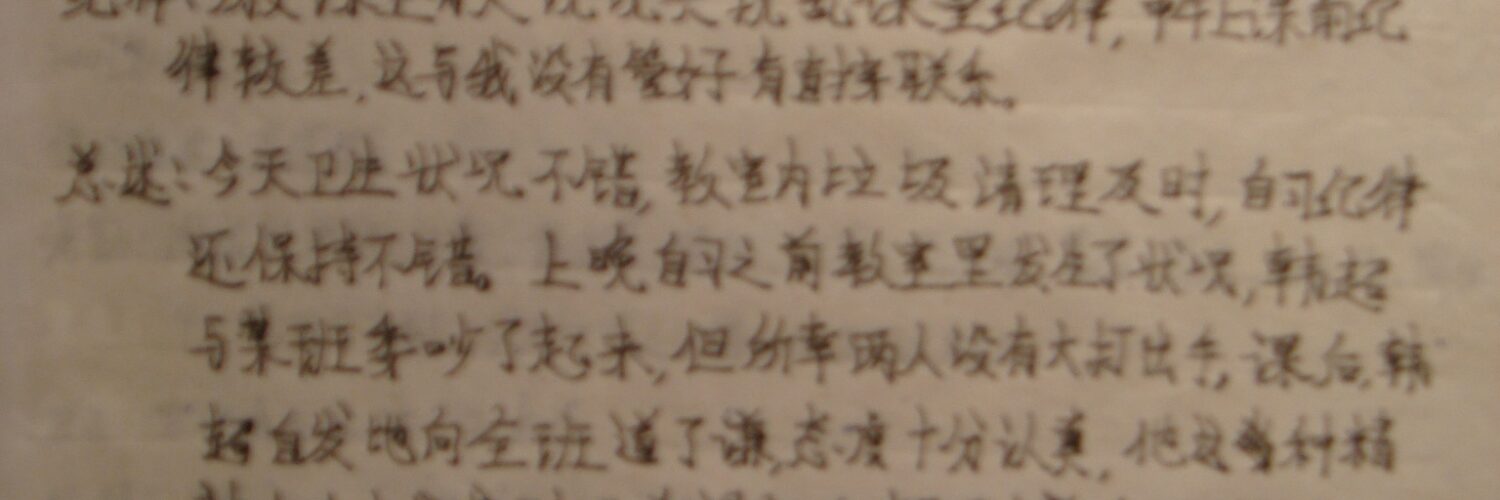 律较差,这与我没有管好有直接联系。
总述:今天卫生状况不错,教室内垃圾清理及时,自习纪律
还保持不错。上晚自习之前教室里发生了状况,韩起
与某班委吵了起来,但所幸两人没有大打出手,课后,韩
起自发地向全班道了谦,态度十分认真,他这种精